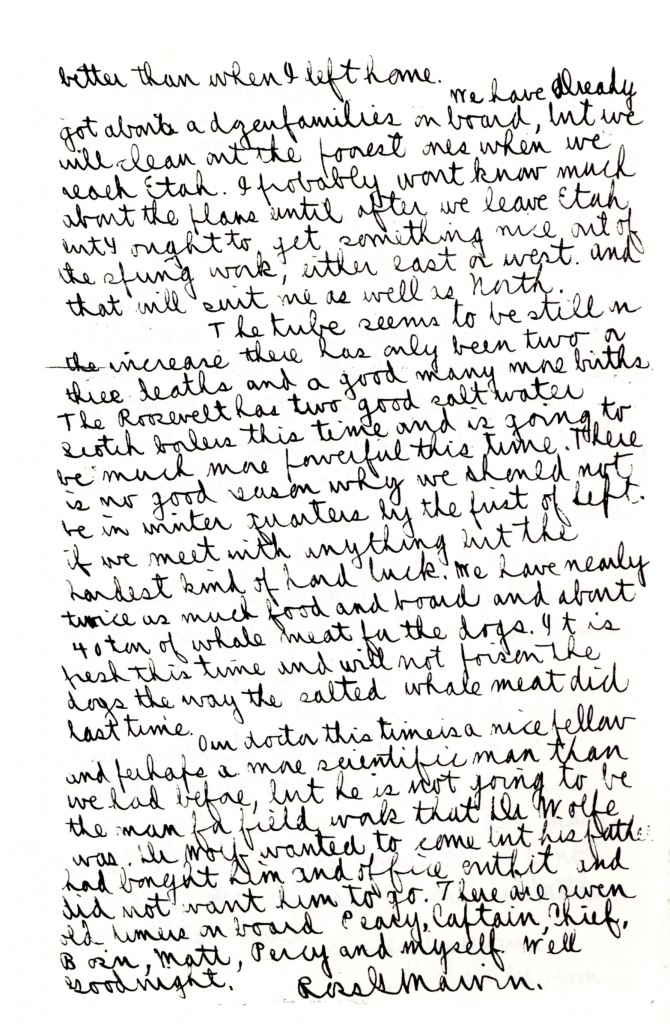 better than when I left home.
We have already
got about a dozen families on board, but we
will clean out the poorest ones when we
reach Etah. I probably wont know much
about the plans until after we leave Etah,
but I ought to get something nice out of
the spring work, either east or west. and
that will suit me as well as North.
The tribe seems to be still on
the increase there has only been two or
three deaths and a good many more births.
The Roosevelt has two good salt water
Scotch boilers this time and is going to
be much more powerful this time. There
is no good reason why we should not
be in winter quarters by the first of Sept.
if we meet with anything but the
hardest kind of hard luck. We have nearly
twice as much food and board and about
40 ton of whale meat for the dogs. It is
fresh this time and will not poison the
dogs the way the salted whale meat did
last time.
Our doctor this time is a nice fellow
and perhaps a more scientific man than
we had before, but he is not going to be
the man for field work that Dr Wolfe
was. Dr Wolf wanted to come but his father
had bought him and office outfit and
did not want him to go. There are seven
old timers on board Peary, Captain, Chief,
Bosn, Matt, Percy and myself. Well
Goodnight. Ross G Marvin.